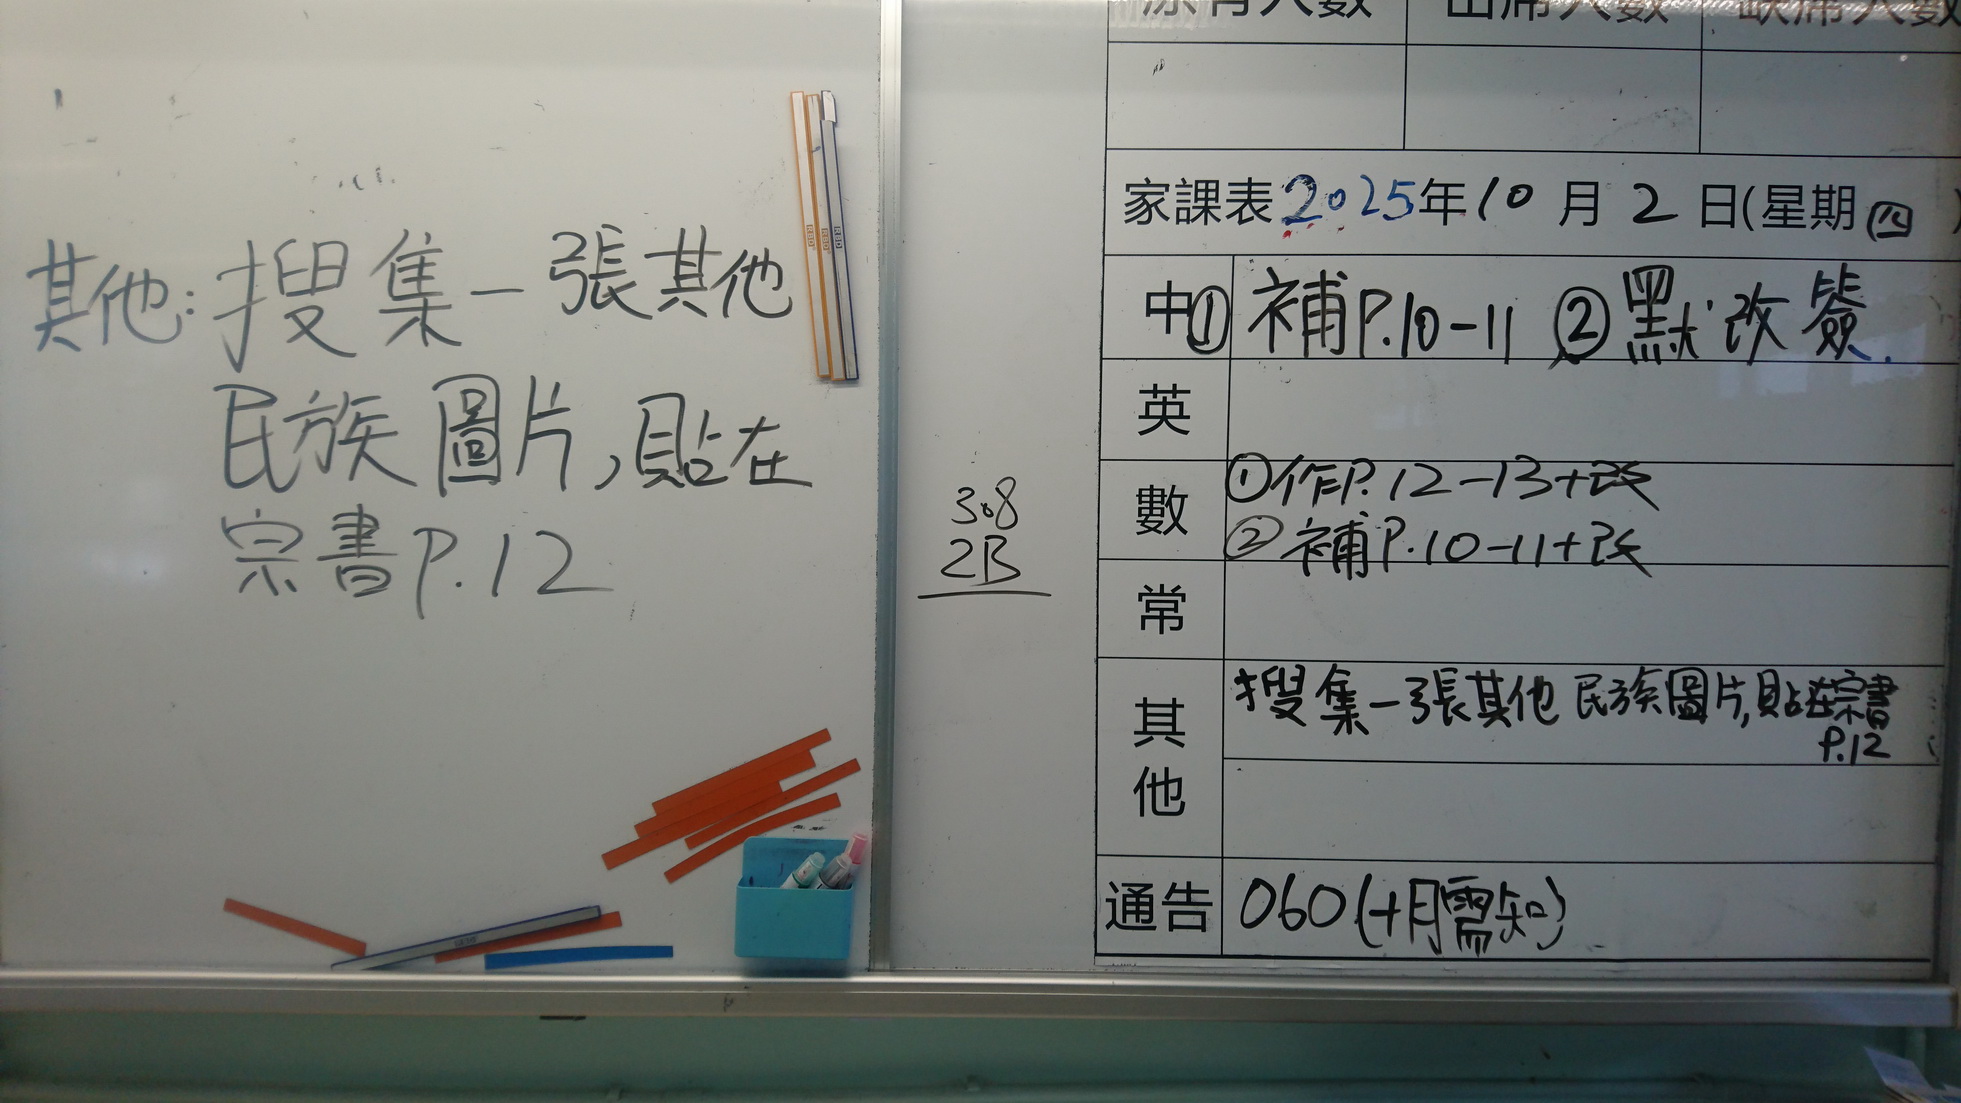 其他:搜集一張其他
民族圖片,貼在
宗書P.12
308
2B
原有人數 出席人數 缺席人數
家課表2025年10月2日(星期四)
中①補P.10-11 ②默改簽
英
數 ①作P.12-13+改
②補P.10-11+改
常
其他 搜集一張其他民族圖片,貼在宗書
P.12
通告 060(十月需知)